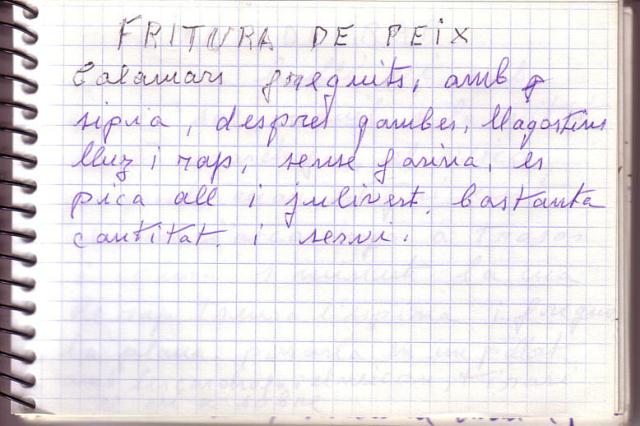 FRITURA DE PEIX
Calamars freguits, amb
sipia, despres gambes, llagostins
lluz i rap, sense farina, es
pica all i julivert, bastanta
cantitat, i servi.